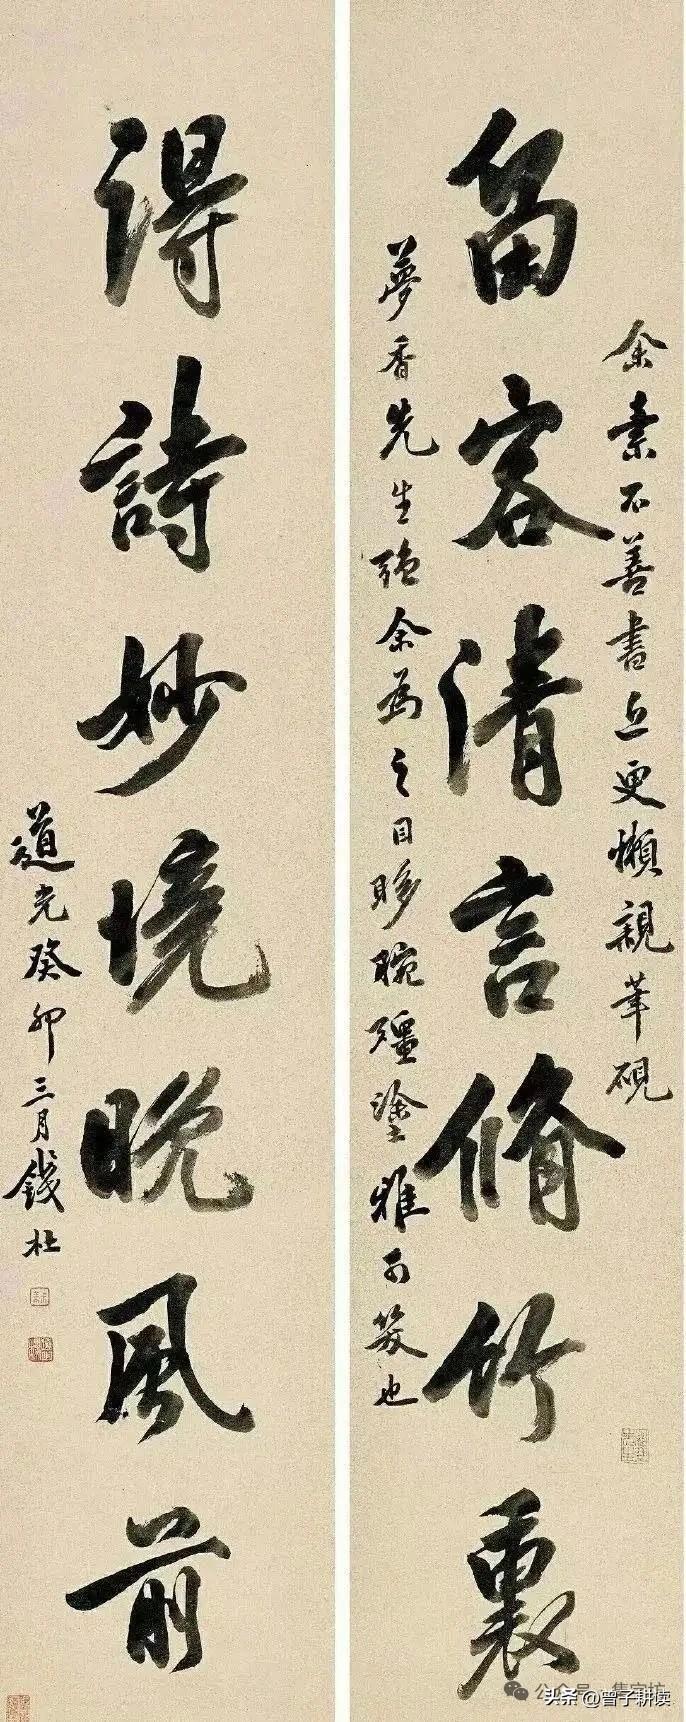 留客清言脩竹裏
余素不善書近更懶親筆硯
夢香先生強余為之目眵腕殭塗雅可笑也
得詩妙境晚風前
道光癸卯三月錢杜
公众号·集字坊
头条@曾子耕读